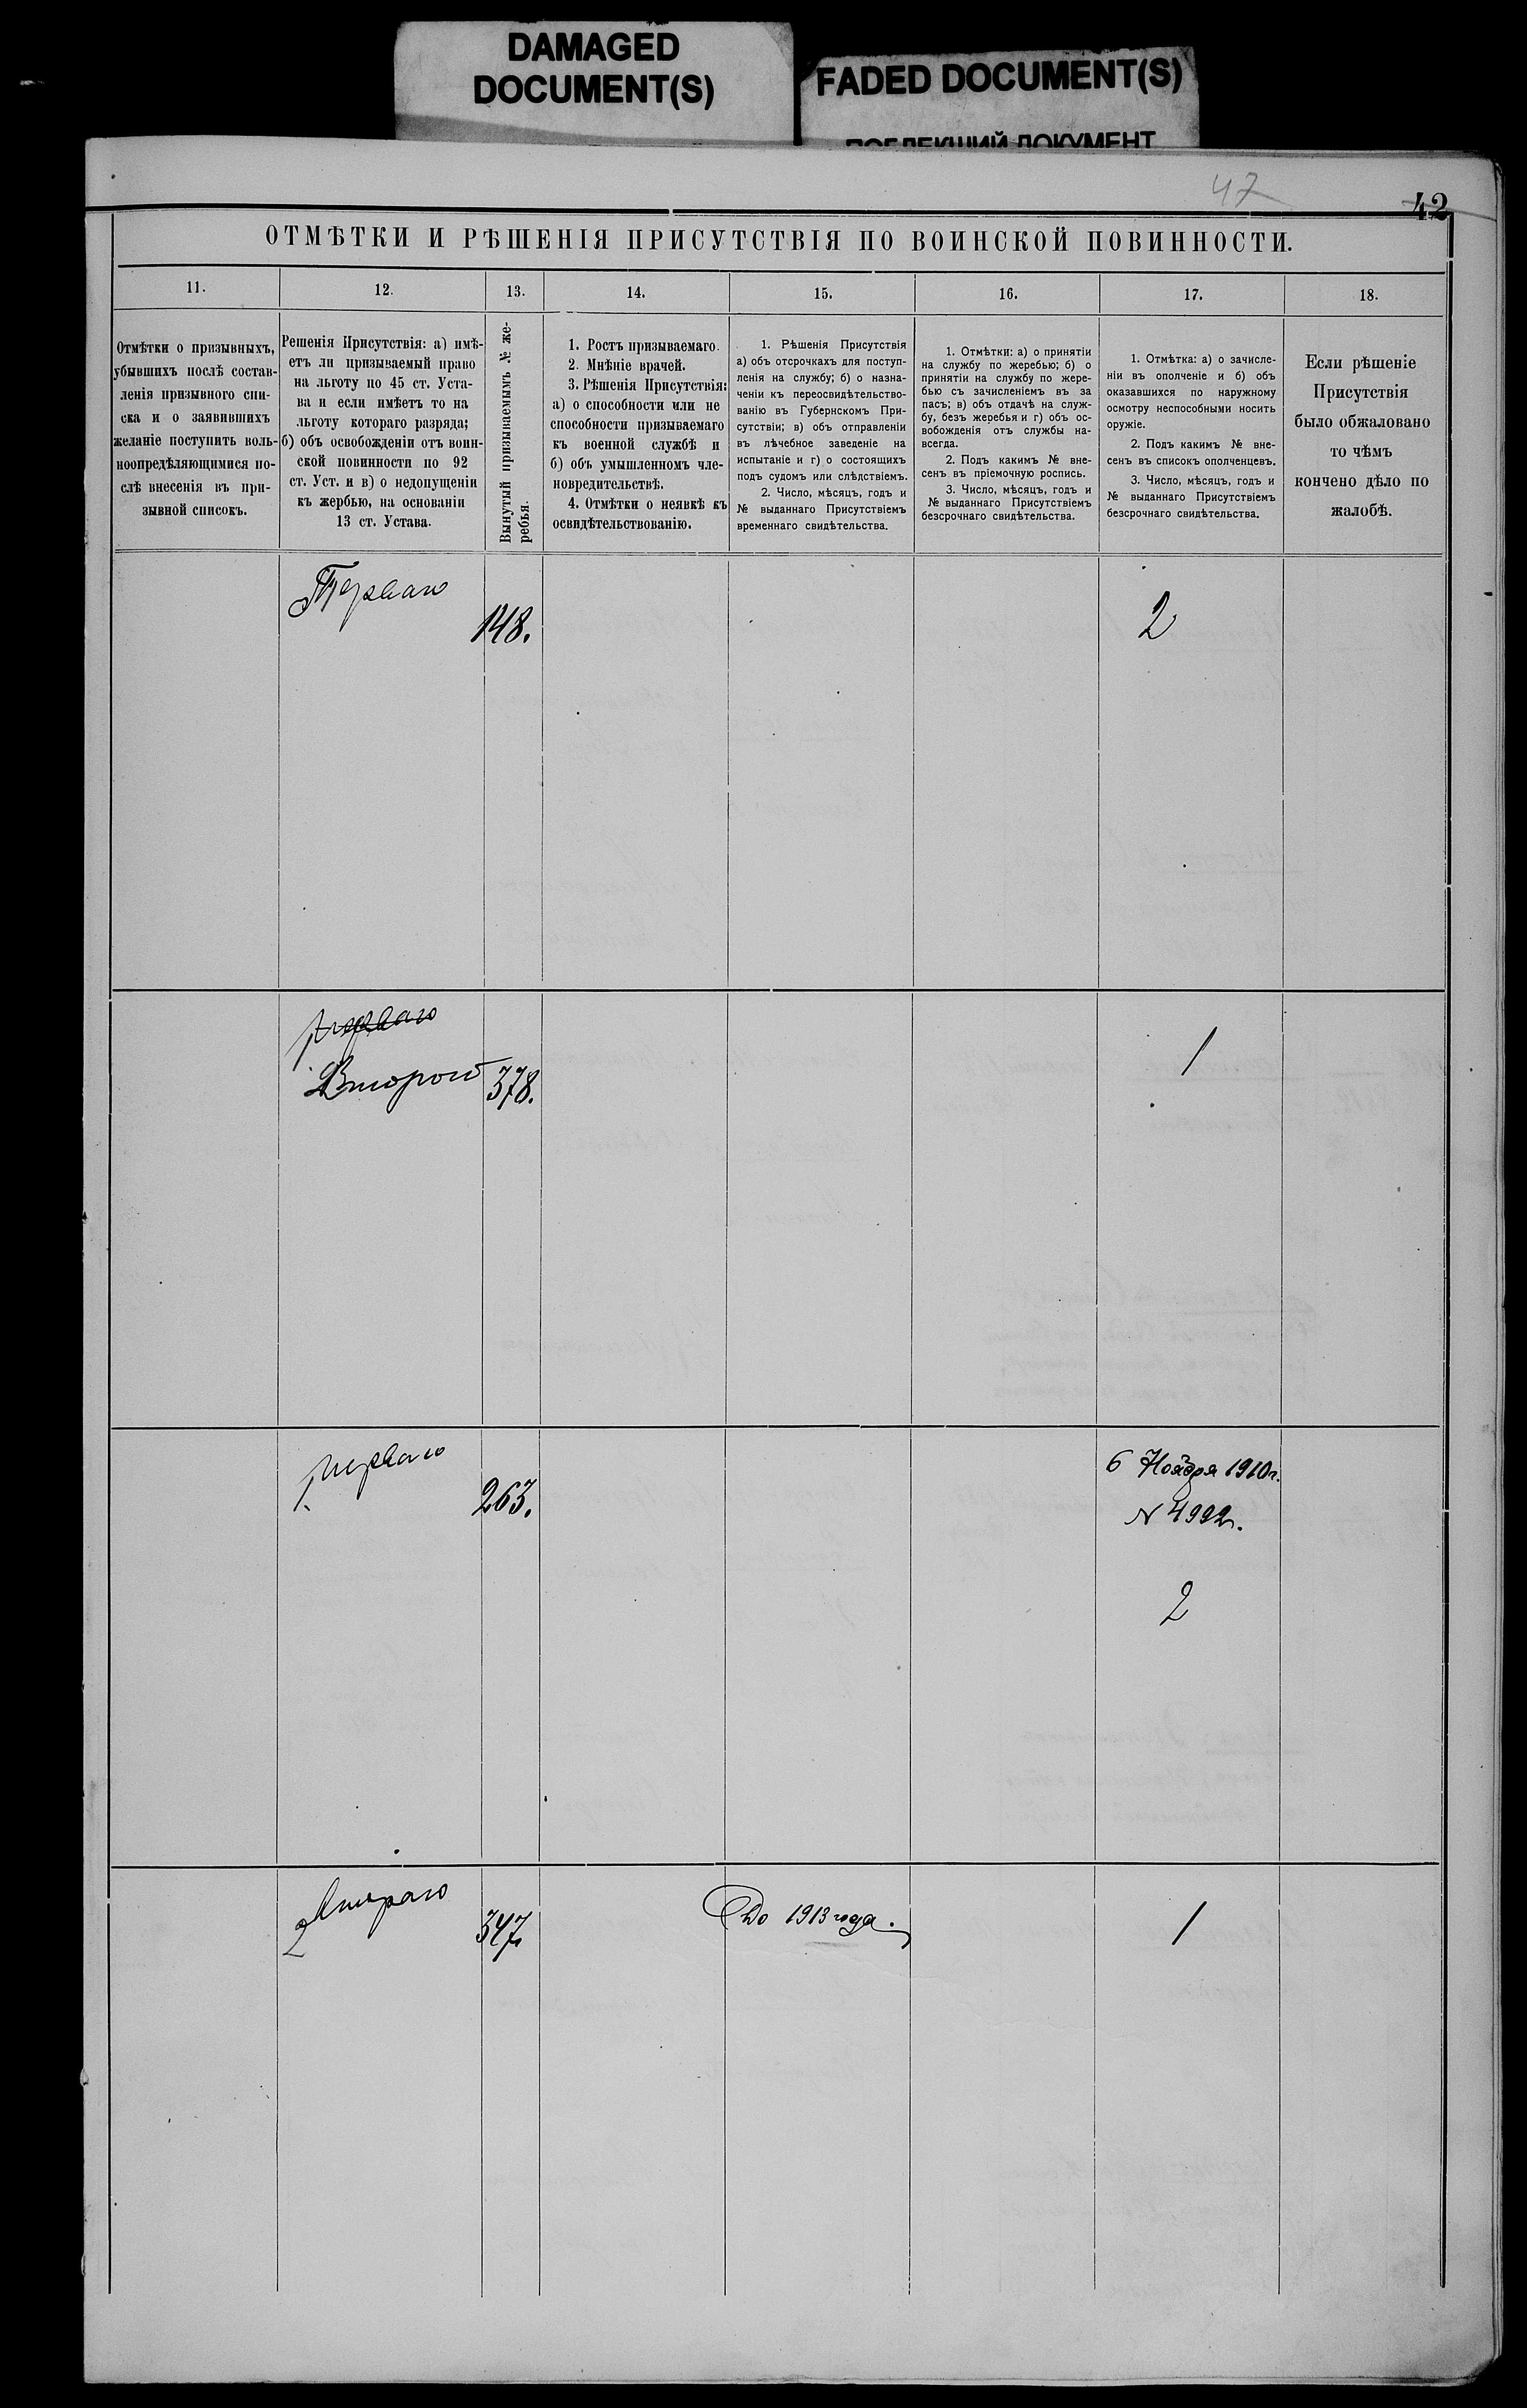 DAMAGED
DOCUMENT(S)
FADED DOCUMENT(S)
ПОБЛЕКШИЙ ДОКУМЕНТ
47
42
ОТМѢТКИ И РѢШЕНІЯ ПРИСУТСТВІЯ ПО ВОИНСКОЙ ПОВИННОСТИ.
11.
12.
13.
14.
15.
16.
17.
18.
Отмѣтки о призывныхъ,
убывшихъ послѣ состав-
ленія призывного спи-
ска и о заявившихъ
желаніе поступить воль-
ноопредѣляющимися по-
слѣ внесенія въ при-
зывной списокъ.
Решенія Присутствія: а) имѣ-
етъ ли призываемый право
на льготу по 45 ст. Уста-
ва и если имѣетъ то на
льготу котораго разряда;
б) объ освобожденіи отъ воин-
ской повинности по 92
ст. Уст. и в) о недопущеніи
къ жербью, на основаніи
13 ст. Устава.
Вынутый призываемымъ № же-
ребья.
1. Ростъ призываемаго.
2. Мнѣніе врачей.
3. Рѣшенія Присутствія:
а) о способности или не
способности призываемаго
къ военной службѣ и
б) объ умышленномъ чле-
новредительствѣ.
4. Отмѣтки о неявкѣ къ
освидѣтельствованію.
1. Рѣшенія Присутствія
а) объ отсрочкахъ для поступ-
ленія на службу; б) о назна-
ченіи къ переосвидѣтельство-
ванію въ Губернскомъ При-
сутствіи; в) объ отправленіи
въ лѣчебное заведеніе на
испытаніе и г) о состоящихъ
подъ судомъ или слѣдствіемъ.
2. Число, мѣсяцъ, годъ и
№ выданнаго Присутствіемъ
временнаго свидѣтельства.
1. Отмѣтки: а) о принятіи
на службу по жеребью; б) о
принятіи на службу по жере-
бью съ зачисленіемъ въ за
пасъ; в) объ отдачѣ на служ-
бу, безъ жеребья и г) объ ос-
вобожденія отъ службы на-
всегда.
2. Подъ какимъ № вне-
сенъ въ пріемочную роспись.
3. Число, мѣсяцъ, годъ и
№ выданнаго Присутствіемъ
безсрочнаго свидѣтельства.
1. Отмѣтка: а) о зачисле-
ніи въ ополченіе и б) объ
оказавшихся по наружному
осмотру неспособными носить
оружіе.
2. Подъ какимъ № вне-
сенъ въ списокъ ополченцевъ.
3. Число, мѣсяцъ, годъ и
№ выданнаго Присутствіемъ
безсрочнаго свидѣтельства.
Если рѣшеніе
Присутствія
было обжаловано
то чѣмъ
кончено дѣло по
жалобѣ.
Перваго
148.
2
перваго
Второго
378.
1
перваго
263.
6 Ноября 1910 г.
N 4992.
2
Второго
347
До 1913 года.
1